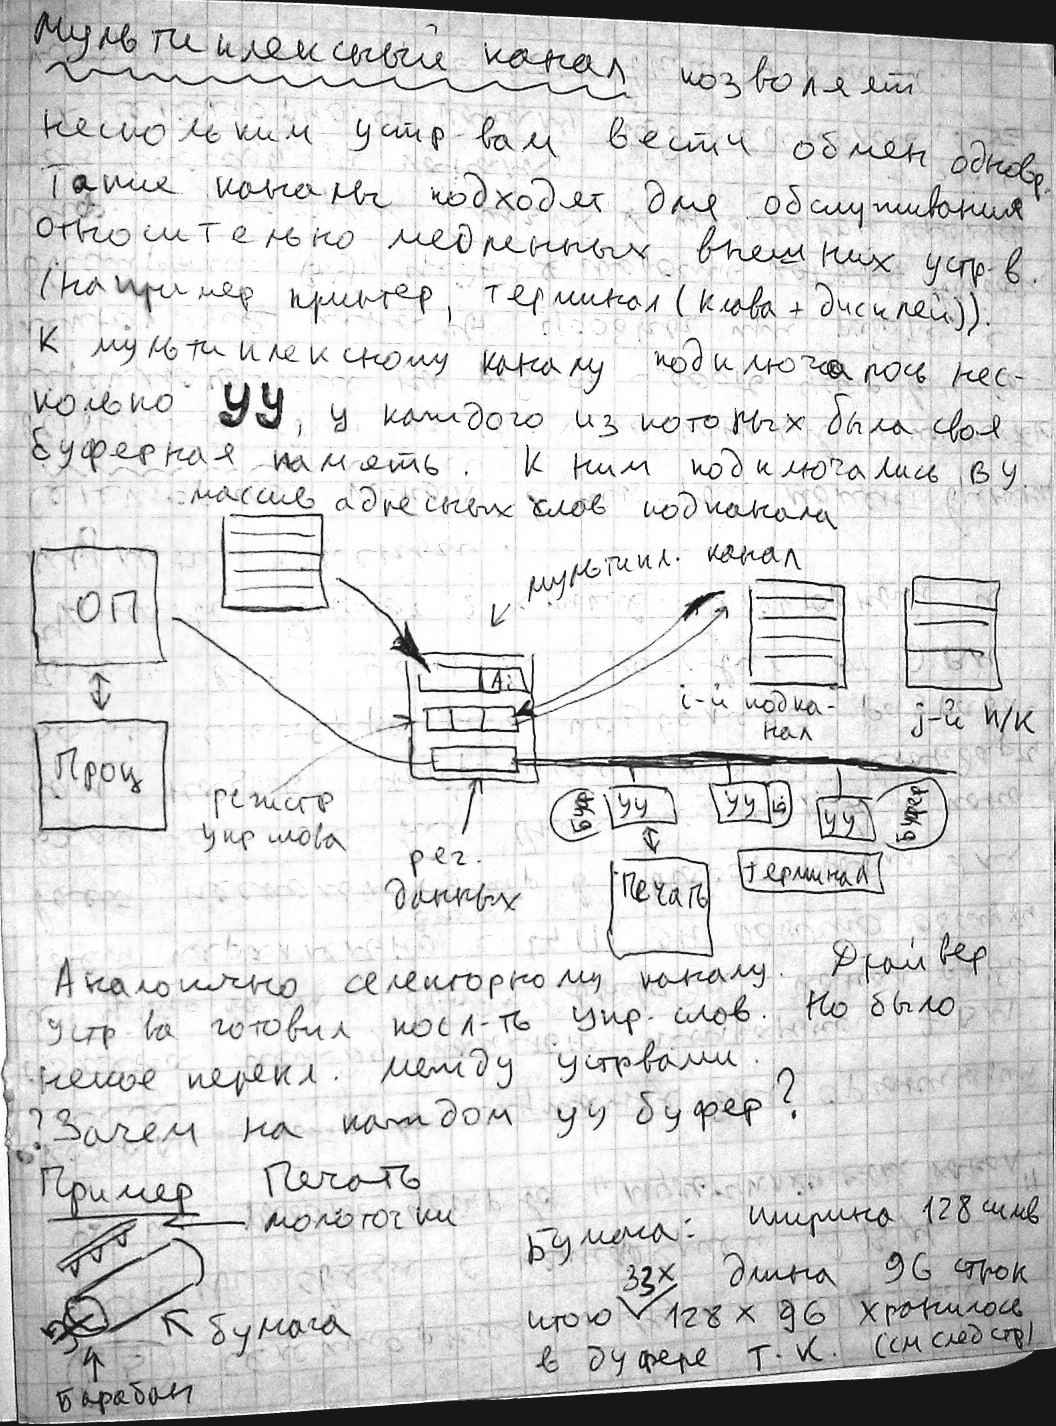 Мультиплексный канал позволяет
нескольким устр-вам вести обмен одновр.
Такие каналы подходят для обслуживания
относительно медленных внешних устр-в.
(например принтер, терминал (клава + дисплей)).
К мультиплексному каналу подключалось нес-
колько УУ, у каждого из которых была своя
буферная память. К ним подключались ВУ.
массив адресных слов подканала
мультипл. канал
ОП
Ai
i-й подка-
нал
j-й п/к
Проц
регистр
упр слова
рег.
данных
Буф
УУ
УУ
Б
УУ
Буфер
Печать
терминал
Аналогично селекторному каналу. Драйвер
устр ва готовил посл-ть упр. слов. Но было
некое перекл. между устрвами.
? Зачем на каждом УУ буфер?
Пример Печать
молоточки
бумага
Барабан
Бумага: ширина 128 симв
длина 96 строк
33x
итого 128 x 96 хранилось
в буфере т.к. (см след стр)